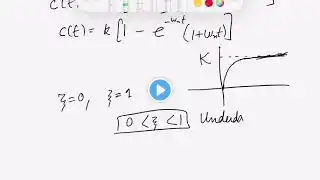 c(t) = K [1 - e^{-ωnt} (1+ωnt)]
K
ξ=0, ξ=1
0 < ξ < 1 Underda